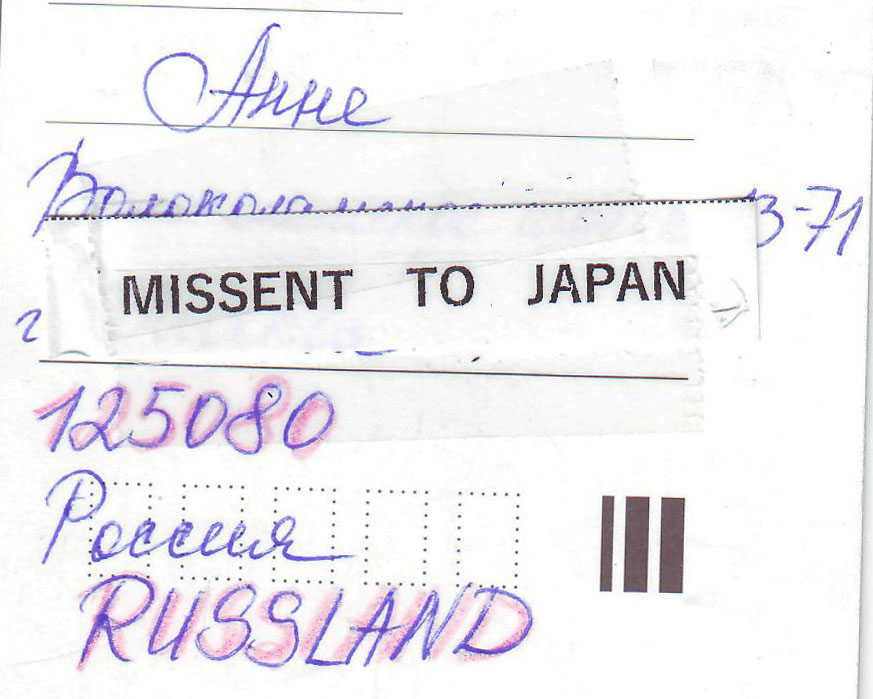 Анне
3-71
MISSENT TO JAPAN
г
125080
Россия
RUSSLAND